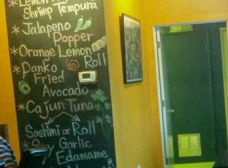 * Lemon
Shrimp Tempura
* Jalapeño
Popper
* Orange Lemon
Roll
* Panko
Fried
Avocado
* Cajun Tuna
Sashimi or Roll
Garlic
* Edamame